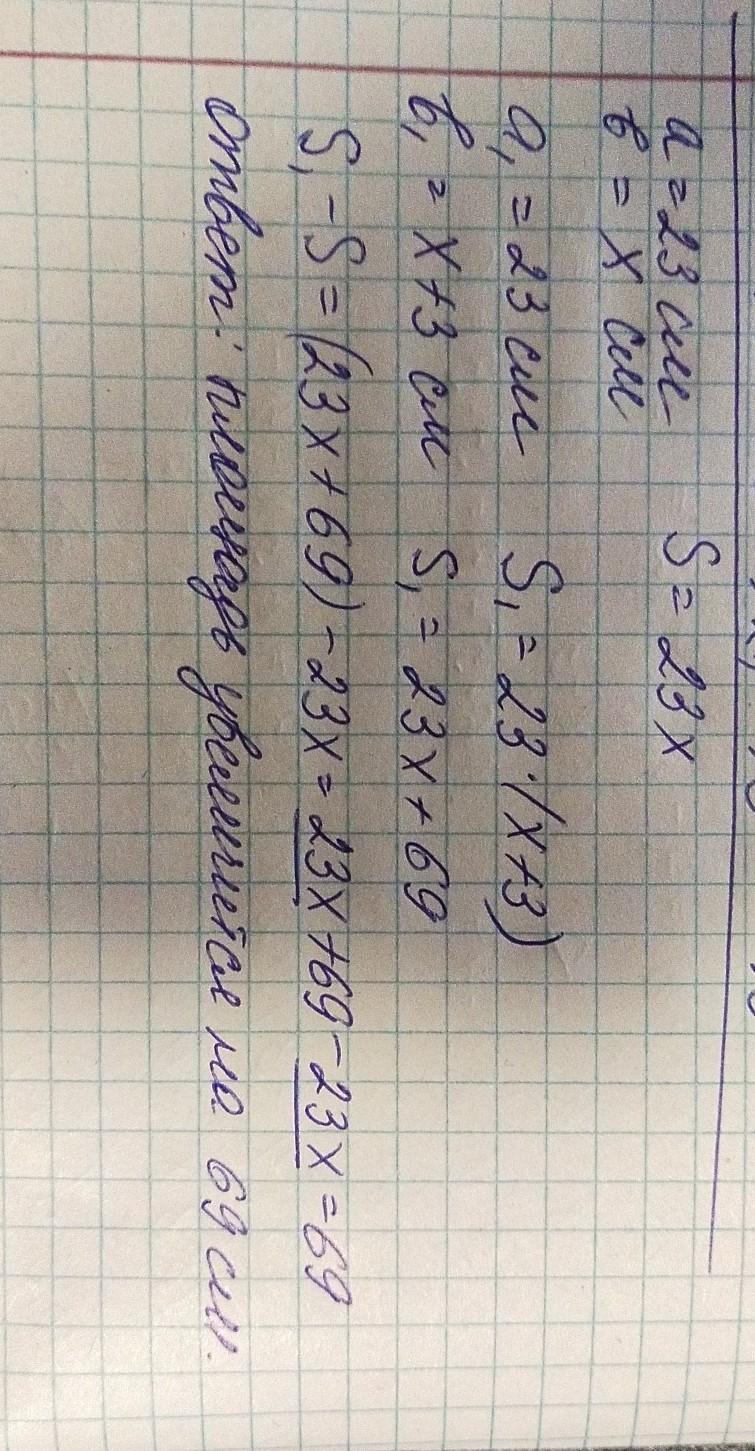 a = 23 см S = 23x
в = x см
a₁ = 23 см S₁ = 23·(x+3)
в₁ = x+3 см S₁ = 23x + 69
S₁ - S = (23x + 69) - 23x = 23x + 69 - 23x = 69
Ответ: площадь увеличится на 69 см.